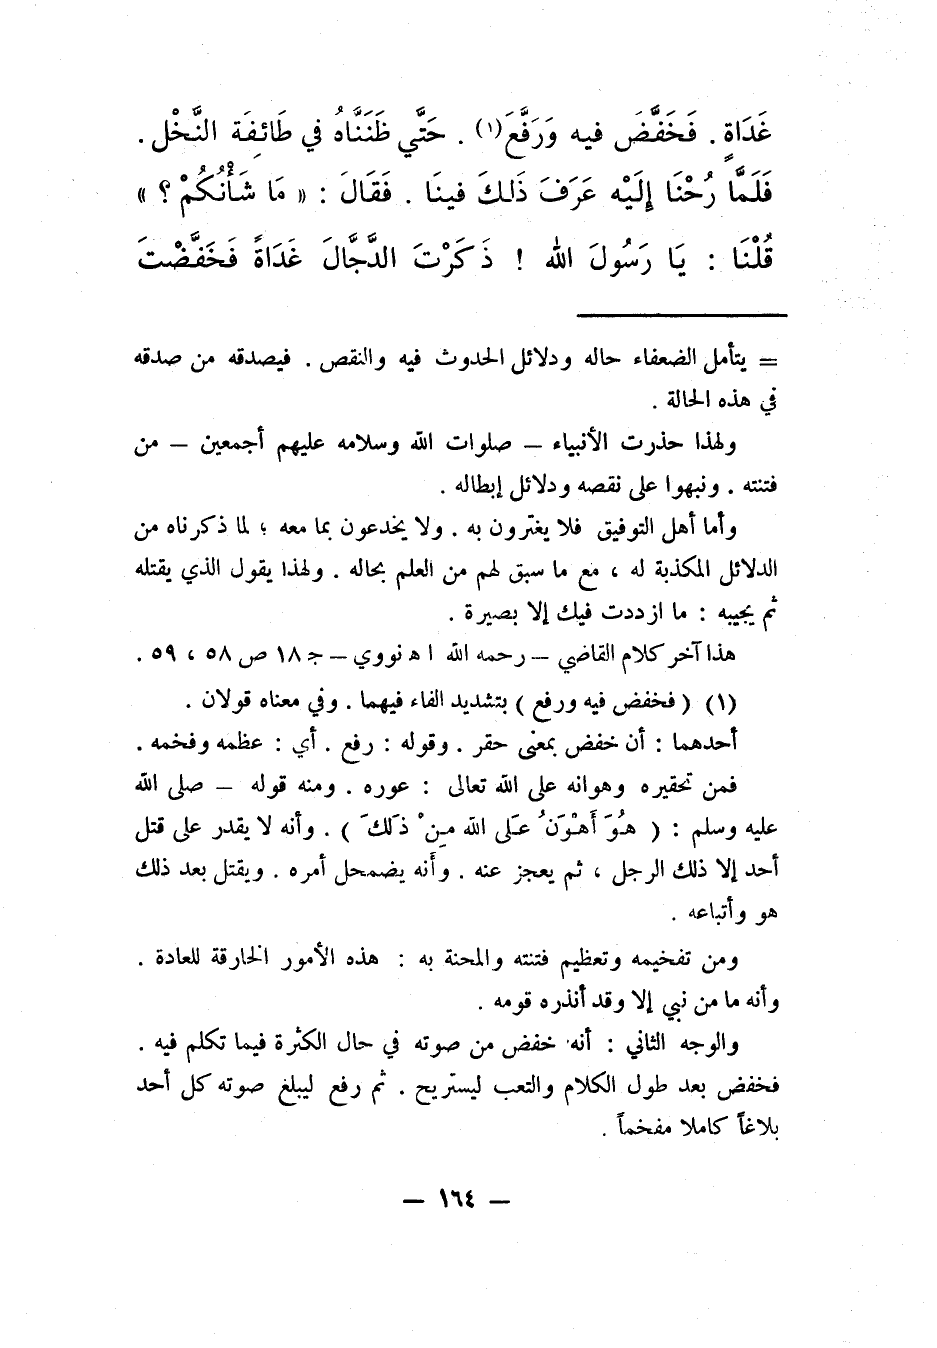 غَدَاةٍ . فَخَفَّضَ فيه وَرَفَّعَ(١) . حَتَّي ظَنَنَّاهُ في طَائِفَة النَّخْل .
فَلَمَّا رُحْنَا إِلَيْه عَرَفَ ذَلكَ فينَا . فَقَالَ : « مَا شَأْنُكُمْ ؟ »
قُلْنَا : يَا رَسُولَ الله ! ذَكَرْتَ الدَّجَّالَ غَدَاةً فَخَفَّضْتَ
= يتأمل الضعفاء حاله ودلائل الحدوث فيه والنقص . فيصدقه من صدقه
في هذه الحالة .
ولهذا حذرت الأنبياء – صلوات الله وسلامه عليهم أجمعين – من
فتنته . ونبهوا على نقصه ودلائل إبطاله .
وأما أهل التوفيق فلا يغترون به . ولا يخدعون بما معه ؛ لما ذكرناه من
الدلائل المكذبة له ، مع ما سبق لهم من العلم بحاله . ولهذا يقول الذي يقتله
ثم يجيبه : ما ازددت فيك إلا بصيرة .
هذا آخر كلام القاضي – رحمه الله ا ﻫ نووي – جـ ١٨ ص ٥٨ ، ٥٩ .
(١) ( فخفض فيه ورفع ) بتشديد الفاء فيهما . وفي معناه قولان .
أحدهما : أن خفض بمعنى حقر . وقوله : رفع . أي : عظمه وفخمه .
فمن تحقيره وهوانه على الله تعالى : عوره . ومنه قوله – صلى الله
عليه وسلم : ( هُوَ أَهْوَنُ عَلَى الله مِنْ ذَلكَ ) . وأنه لا يقدر على قتل
أحد إلا ذلك الرجل ، ثم يعجز عنه . وأنه يضمحل أمره . ويقتل بعد ذلك
هو وأتباعه .
ومن تفخيمه وتعظيم فتنته والمحنة به : هذه الأمور الخارقة للعادة .
وأنه ما من نبي إلا وقد أنذره قومه .
والوجه الثاني : أنه خفض من صوته في حال الكثرة فيما تكلم فيه .
فخفض بعد طول الكلام والتعب ليستريح . ثم رفع ليبلغ صوته كل أحد
بلاغاً كاملا مفخماً .
– ١٦٤ –